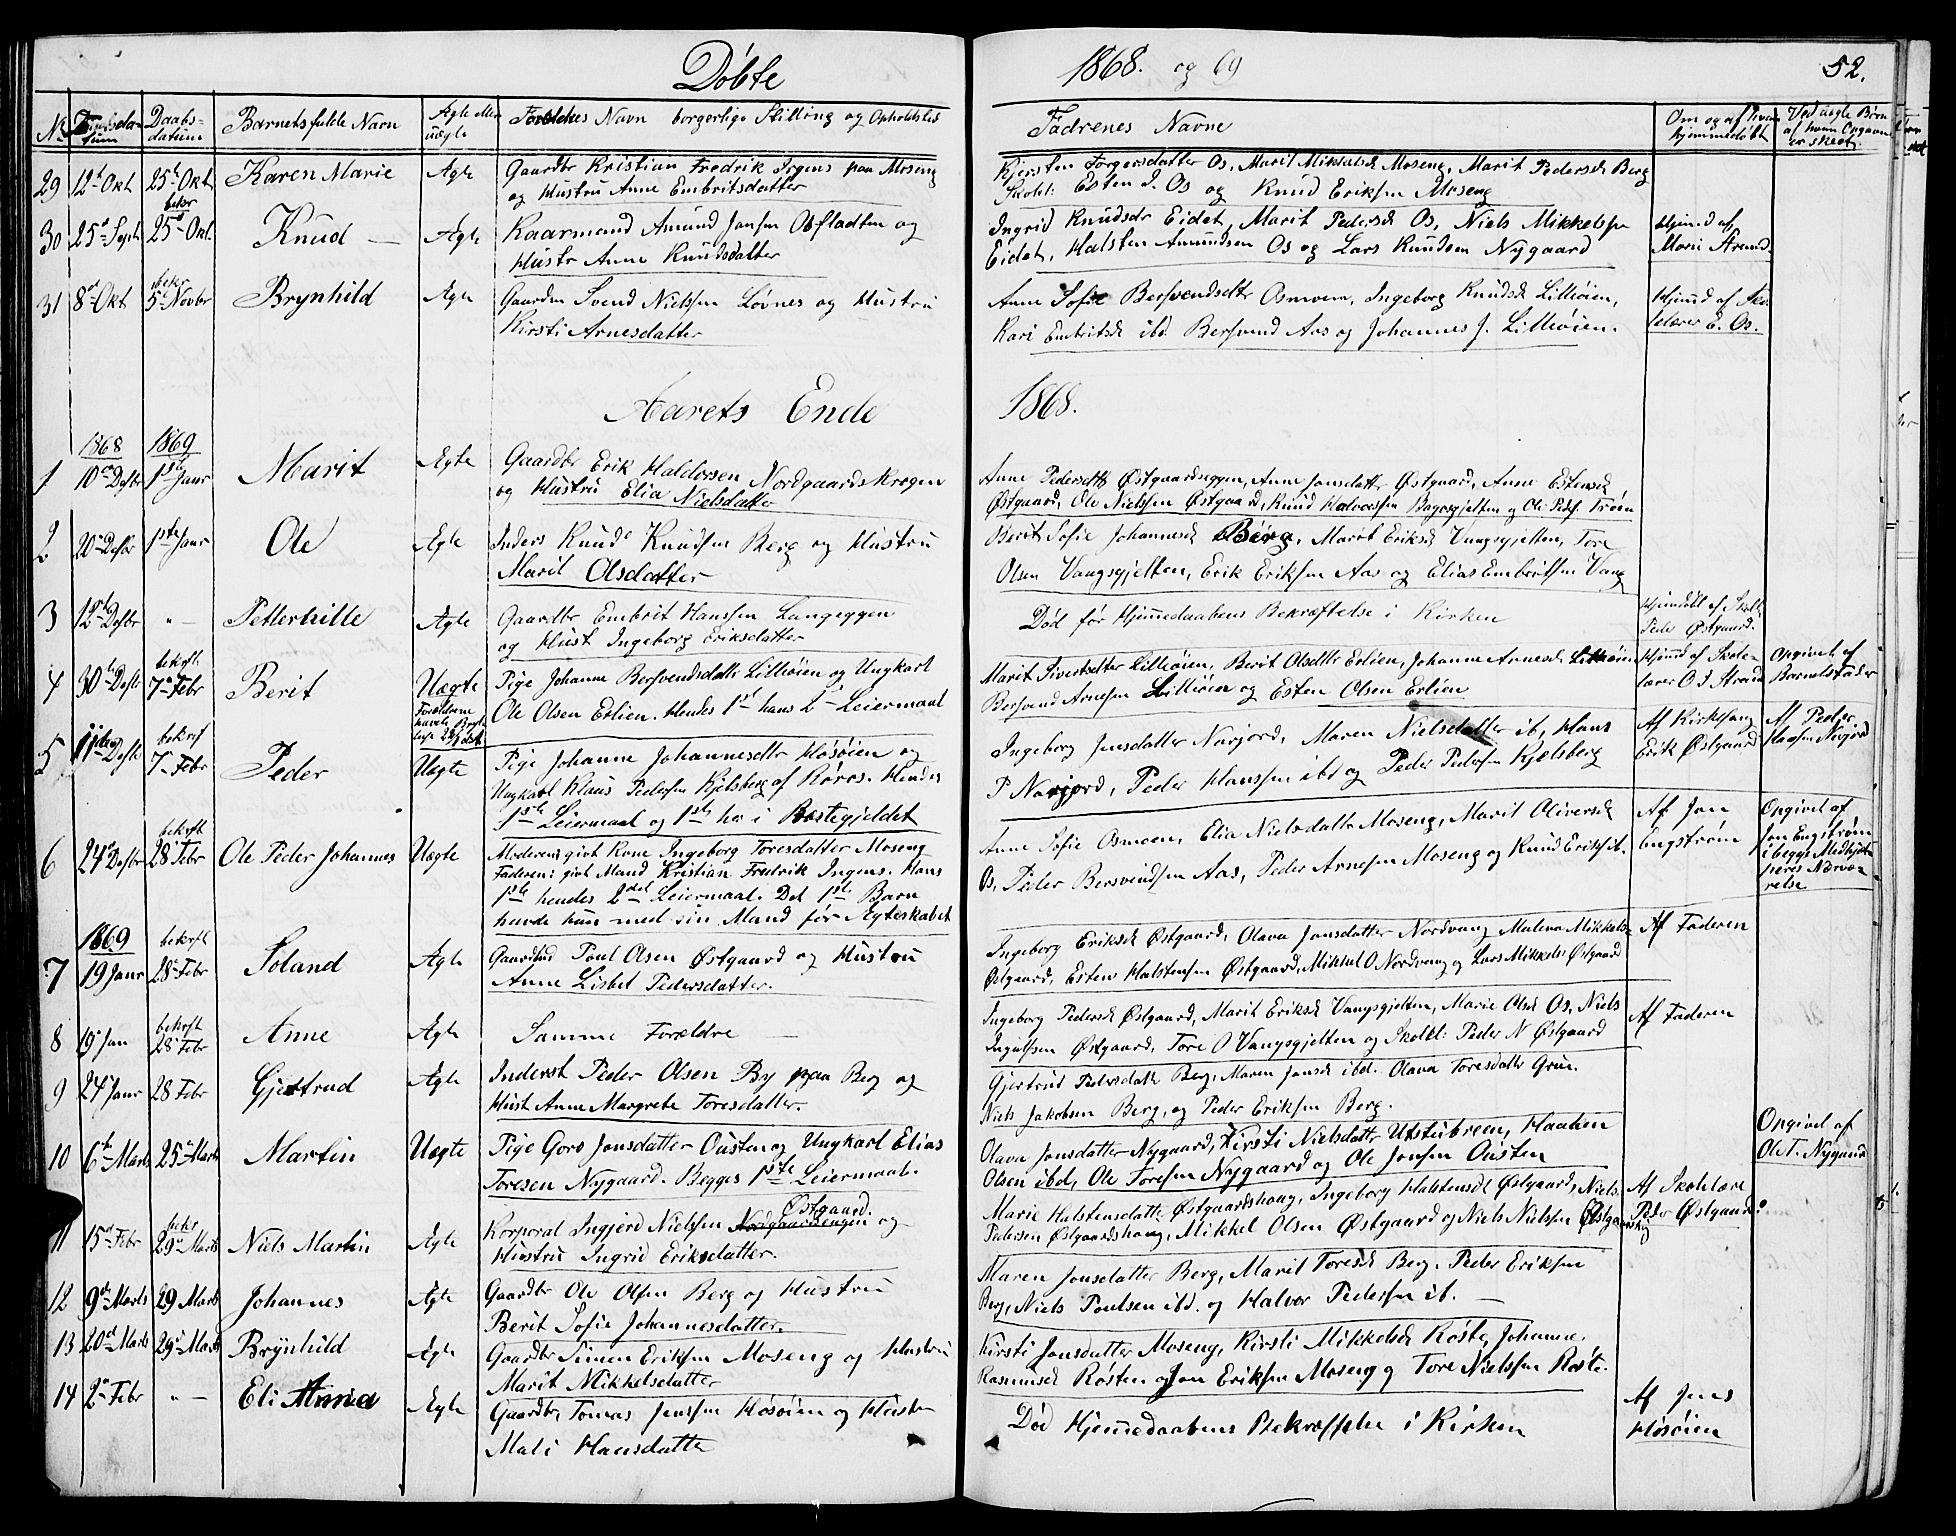 Döbte 1868. og 69 52.
No Födselsdatum Daabsdatum Barnets fulde Navn Ægte eller uægte Forældrenes Navn borgerlige Stilling og Opholdssted Fadrenes Navne Om og af hvem hjemmedöbt Ved uægte Börn af hvem Opgaven er skeet.
29 12t Okt 25t Okt Karen Marie Ægte Gaardbr Kristian Fredrik Irgens paa Moseng
og Hustru Anne Embritsdatter
Kjersten Torgersdatter Os, Marit Mikkelsd Moseng, Marit Pedersd Berg
Skohl: Esten J. Os og Knud Eriksen Moseng
30 25d Sept bekr 25d Okt Knud Ægte Kaarmand Amund Jonsen Osfladten og
Hustr Anne Knudsdatter
Ingrid Knudsdr Eidet, Marit Pedersd Os, Niels Mikkelsen
Eidet, Halsten Amundsen Os og Lars Knudsen Nygaard
Hjemd af
Morten Strand.
31 8d Okt bekr 5 Novbr Brynhild Ægte Gaardm Svend Nielssen Lövnes og Hustru
Kirsti Arnesdatter
Anne Sofie Bersvendsdtr Osmoen, Ingeborg Knudsd Lilleöien,
Kari Embritsd ibd. Bersvend Aas og Johannes J. Lilleöien.
Hjemd af Sko
lelærer E. Os.
Aarets Ende 1868.
1868 1869
1 10d Desbr 1ste Janr Marit Ægte Gaardbr Erik Haldorsen Nordgaardskrogen
og Hustru Elia Nielsdatter
Anne Pedersdtr Östgaardseggen, Anne Jonsdatter Östgaard, Anne Estensd
Östgaard, Ole Nielssen Östgaard, Knud Halvorssen Bagergjelten og Ole Peds. Tröen
2 20d Desbr 1ste Janr Ole Ægte Inders Knud Knudsen Berg og Hustru
Marit Olsdatter
Berit Sofie Johannesd Berg, Marit Eriksd Vangsgjelten, Tore
Olsen Vangsgjelten, Erik Eriksen Aas og Elias Embritsen Vang
3 12t Desbr " Petternille Ægte Gaardbr Embrit Hanssen Langeggen
og Hust Ingeborg Eriksdatter
Död för Hjemmedaabens Bekræftelse i Kirken
Hjemdöbt af Skoll
Peder Östgaard.
4 30t Desbr bekrft. 7d Febr Berit Uægte Pige Johanne Bersvendsdatr Lilleöien og Ungkarl
Ole Olsen Erlien. Hendes 1st hans 2d Leiermaal
Marit Sivertsdtter Lilleöien, Berit Olsdttr Erlien, Johanne Arnesd Lilleöien
Bersvend Arnesen Lilleöien og Esten Olsen Erlien
Hjemd af Skole
lærer O J Strand
Opgivet af
Barnets Fader
5 11te Desbr bekref 7d Febr Peder Uægte Pige Johanne Johannesdtr Hösöien og
Ungkarl Klaus Pedersen Kjelsberg af Röros. Hendes
1ste Leiermaal og 1ste her i Præstegjeldet
Ingeborg Jensdatter Narjord, Maren Nielsdatter ib, Hans
P Narjord, Peder Hanssen ibd og Peder Pedersen Kjelsberg
Af Kirkesang
Erik Östgaard
6 24d Desbr bekrft 28d Febr Ole Peder Johannes Uægte Moderen: givt Kone. Ingeborg Toresdatter Moseng
Faderen: givt Mand Kristian Fredrik Irgens. Hans
1ste hendes 2det Leiermaal. Det 1ste Barn
havde hun med sin Mand för Ægteskabet
Anne Sofie Osmoen, Elia Nielsdatter Moseng, Marit Oliversd
Os, Peder Bersvendsen Aas, Peder Arnesen Moseng og Knud Eriks ib.
Af Jon
Engström
Opgivet af
Jon Engström
i begge Medhjæl
peres Nærvæ
relse
1869
7 19 Janr bekrft 28d Febr Soland Ægte Gaardbd Poul Olsen Östgaard og Hustru
Anne Lisbet Pedersdatter.
Ingeborg Eriksd Östgaard, Olava Jonsdatter Nordvang Malena Mikkels-
Östgaard, Esten Halstensen Östgaard, Mikkel O Nordvang og Lars Mikkels Östgaard
Af Faderen
8 19d Jan bekrft 28d Febr Anne Ægte Samme Forældre
Ingeborg Pedersd Östgaard, Marit Eriksd Vangsgjelten, Marie Olsd Os, Niels
Ingulfsen Östgaard, Tore O Vangsgjelten og Skolel: Peder N Östgaard
Af Faderen
9 24d Janr 28 Febr Gjertrud Ægte Inderst Peder Olsen By paa Berg og
Hust Anne Margrete Toresdatter.
Gjertrud Pedersdattr Berg, Maren Jonsd ibd. Olava Toresdattr Grue.
Niels Jakobsen Berg, og Peder Eriksen Berg.
10 6te Marts 25d Marts Martin Uægte Pige Goro Jonsdatter Ousten og Ungkarl Elias
Toresen Nygaard. Begges 1ste Leiermaal.
Olava Jonsdatter Nygaard, Kirsti Nielsdatter Utstubreen, Haaken
Olsen ibd, Ole Toresen Nygaard og Ole Jonsen Ousten
Opgivet af
Ole T. Nygaard
11 15d Febr bekr 29d Marts Niels Martin Ægte Korporal Ingjerd Nielssen Nordgaardsengen Östgaard. og
Hustru Ingrid Eriksdatter.
Marie Halstensdattr Östgaardshaug, Ingeborg Halstensdt Östgaard, Niels
Pedersen Östgaardshaug, Mikkel Olsen Östgaard og Niels Nielsen Östgaardshaug
Af Skolelære
Peder Östgaard.
12 9de Marts 29 Marts Johannes Ægte Gaardbr Ole Olsen Berg og Hustru
Berit Sofie Johannesdatter.
Maren Jonsdatter Berg, Marit Toresd Berg. Peder Eriksen
Berg, Niels Poulsen ibd. og Halvor Pedersen ib.
13 20d Marts 29d Marts Brynhild Ægte Gaardbr Simen Eriksen Moseng og Hustru
Marit Mikkelsdatter
Kirsti Jonsdatter Moseng, Kirsti Mikkelsd Röste, Johanne
Rasmusd Rösten og Jon Eriksen Moseng og Tore Nielssen Röste.
14 2d Febr " Eli Anna Ægte Gaardbr, Tomas Jenssen Hösöien og Hustr
Mali Hansdatte
Död Hjemmedaabens Bekræftelse i Kirken
Af Jens
Hösöien